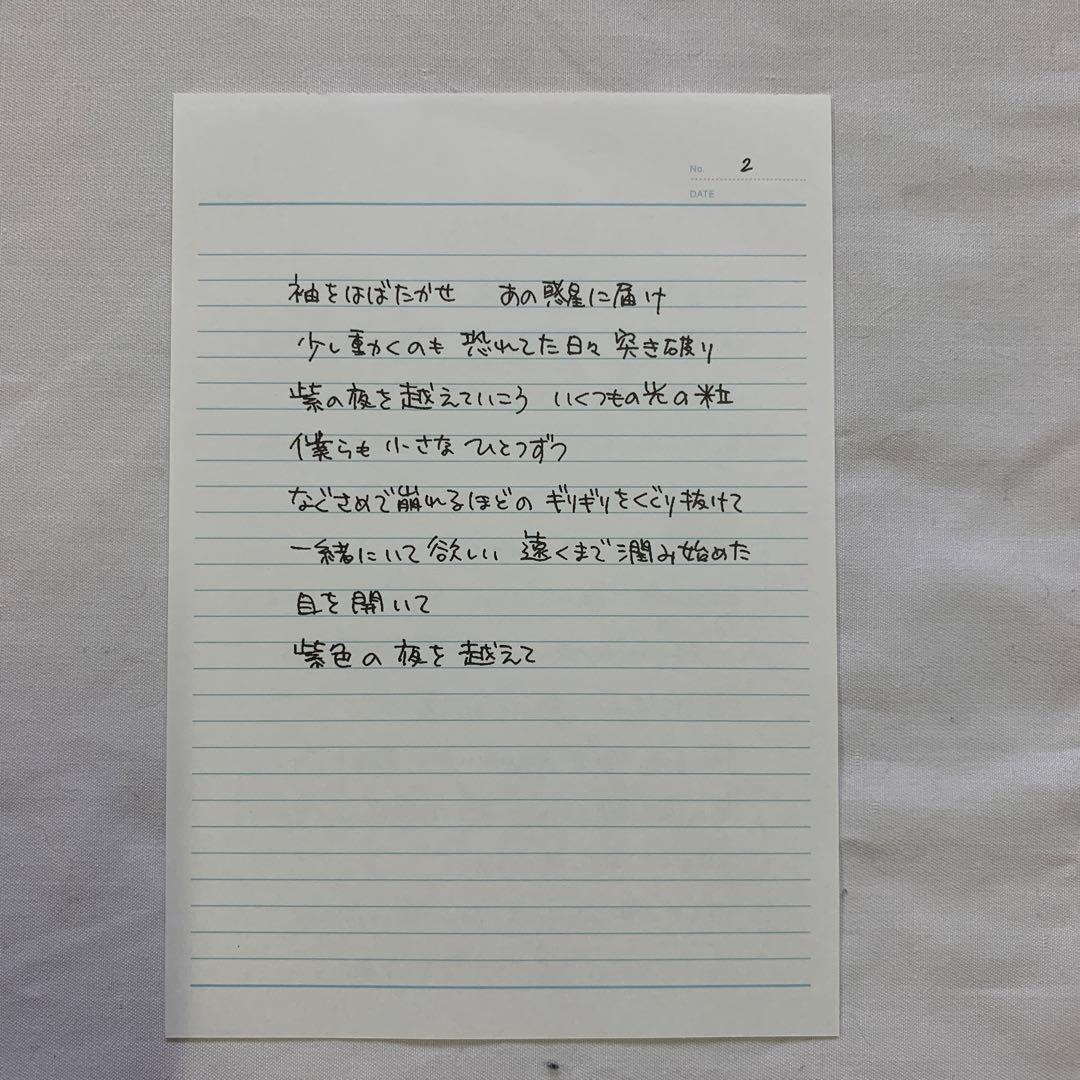 No. 2
DATE
袖をはばたかせ あの惑星に届け
少し動くのも 恐れてた日々 突き破り
紫の夜を越えていこう いくつもの光の粒
僕らも 小さな ひとつずつ
なぐさめで崩れるほどの ギリギリをくぐり抜けて
一緒にいて欲しい 遠くまで 潤み始めた
目を開いて
紫色の夜を越えて